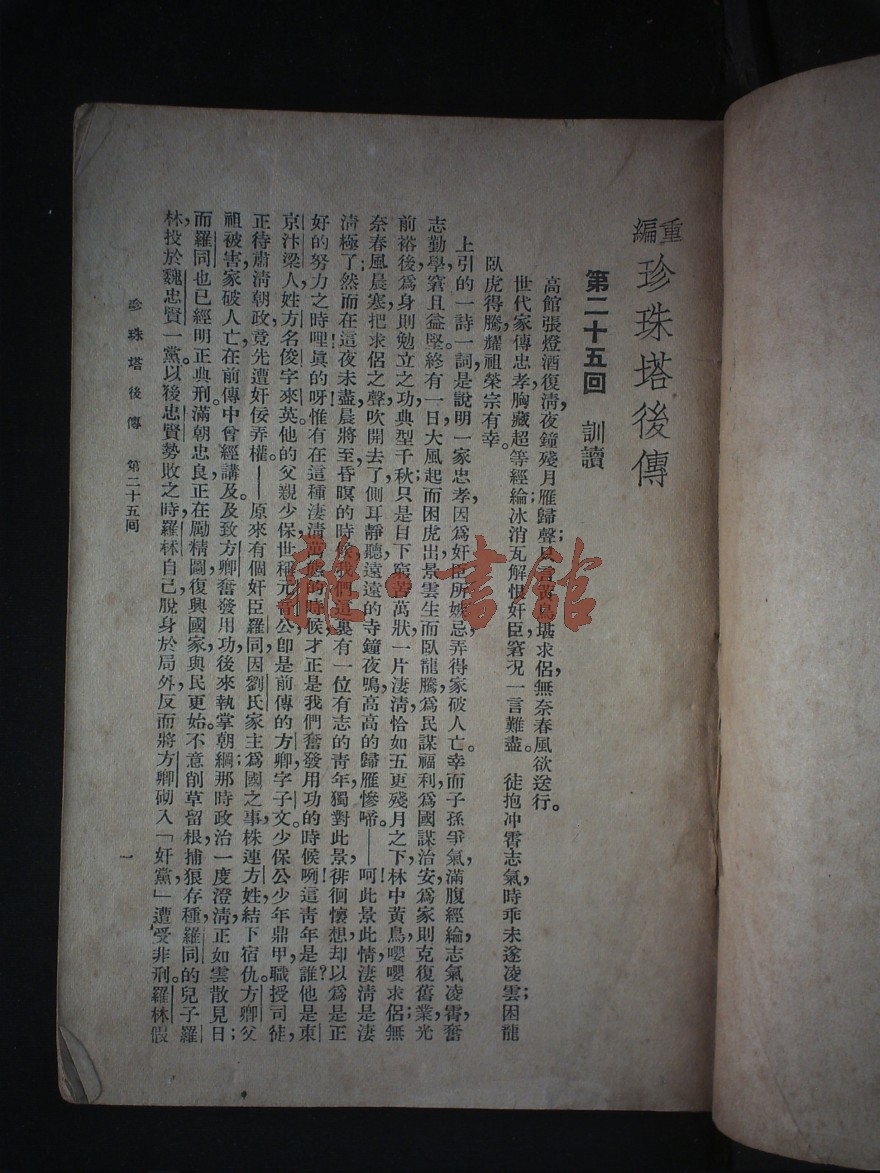 重編 珍珠塔後傳
第二十五回 訓讀
高館張燈酒復淸,夜鐘殘月雁歸聲;只言黃鳥堪求侶,無奈春風欲送行。
世代家傳忠孝,胸藏超等經綸,冰消瓦解恨奸臣,窘況一言難盡。 徒抱冲霄志氣,時乖未遂凌雲;困龍
臥虎得騰耀,祖榮宗有幸。
上引的一詩一詞,是說明一家忠孝,因爲奸臣所嫉忌,弄得家破人亡。幸而子孫爭氣,滿腹經綸,志氣凌霄,奮
志勤學,窘且益堅,終有一日大風起而困虎出,景雲生而臥龍騰,爲民謀福利,爲國謀治安,爲家則克復舊業,光
前裕後,爲身則勉立之功,典型千秋;只是目下窮苦萬狀,一片淒淸,恰如五更殘月之下,林中黃鳥,嚶嚶求侶,無
奈春風晨寒,把求侶之聲吹開去了,側耳靜聽,遠遠的寺鐘夜鳴,高高的歸雁慘啼。——呵,此景此情,淒淸是淒
淸極了,然而在這夜未盡,晨將至,昏暝的時候,我們這裏有一位有志的靑年,獨對此景,徘徊懷想,却以爲是正
好的努力之時哩!眞的呀,惟有在這種淒淸萬態的時候,才正是我們奮發用功的時候咧!這靑年是誰?他是東
京汴梁人,姓方名俊字來英。他的父親少保,世稱元音公,卽是前傳的方卿字子文。少保公少年鼎甲,職授司徒,
正待肅淸朝政,竟先遭奸佞弄權。——原來有個奸臣羅同,因劉氏家主爲國之事,株連方姓,結下宿仇。方卿父
祖被害,家破人亡,在前傳中曾經講及,及致方卿奮發用功,後來執掌朝綱,那時政治一度澄淸,正如雲散見日;
而羅同也已經明正典刑。滿朝忠良,正在勵精圖復興國家,與民更始。不意削草留根,捕狼存種,羅同的兒子羅
林,投於魏忠賢一黨。以後忠賢勢敗之時,羅林自己脫身於局外,反而將方卿砌入「奸黨」,遭受非刑。羅林假
珍珠塔後傳 第二十五回
一
雜·書館